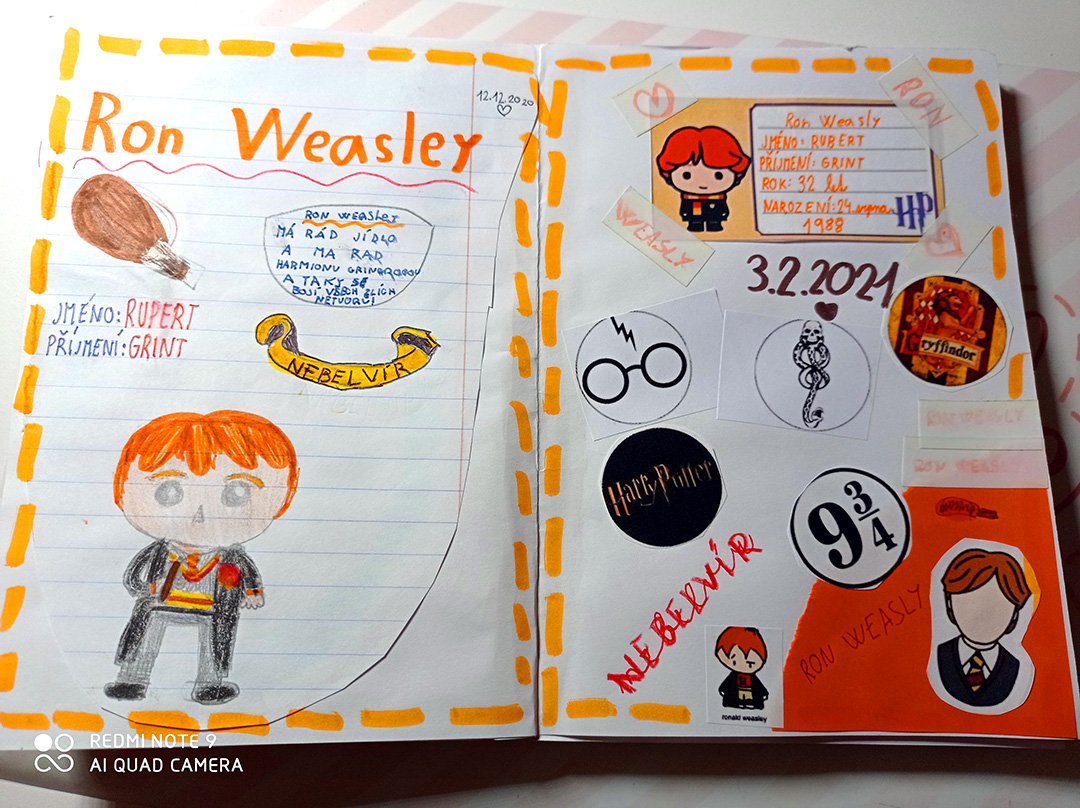 12.12.2020
Ron Weasley
RON WEASLEY
MÁ RÁD JÍDLO
A MA RAD
HARMIONU
A TAKY SE
BOJÍ VŠECH ZLÍCH
NETVORŮ
JMÉNO: RUPERT
PŘÍJMENÍ: GRINT
NEBELVÍR
RON
WEASLY
Ron Weasly
JMÉNO: RUBERT
PŘÍJMENÍ: GRINT
ROK: 32 let
NAROZENÍ: 24. srpna
1988
HP
3.2.2021
Gryffindor
RON WEASLY
RON WEASLY
Harry Potter
9 3/4
NEBERVÍR
RON WEASLY
ronald weasley
REDMI NOTE 9
AI QUAD CAMERA